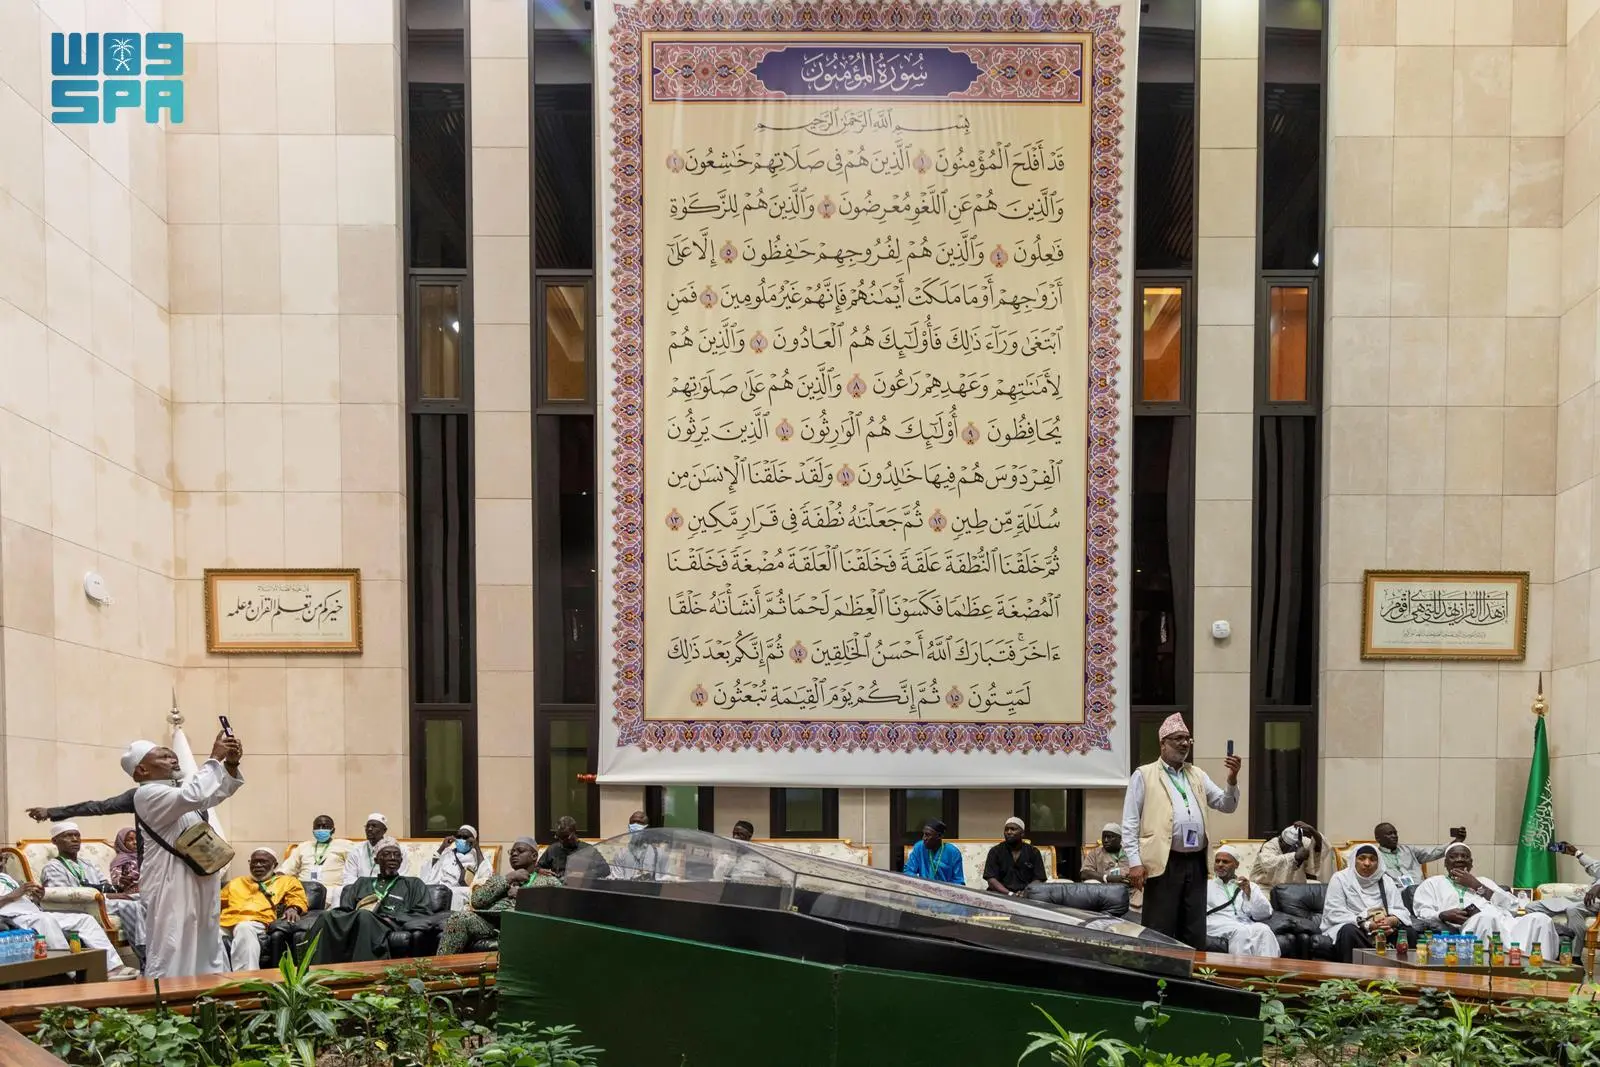 WAS
SPA
سُورَةُ المُؤْمِنُون
بِسْمِ ٱللَّهِ ٱلرَّحْمَٰنِ ٱلرَّحِيمِ
قَدْ أَفْلَحَ ٱلْمُؤْمِنُونَ ١ ٱلَّذِينَ هُمْ فِى صَلَاتِهِمْ خَٰشِعُونَ ٢
وَٱلَّذِينَ هُمْ عَنِ ٱللَّغْوِ مُعْرِضُونَ ٣ وَٱلَّذِينَ هُمْ لِلزَّكَوٰةِ
فَٰعِلُونَ ٤ وَٱلَّذِينَ هُمْ لِفُرُوجِهِمْ حَٰفِظُونَ ٥ إِلَّا عَلَىٰٓ
أَزْوَٰجِهِمْ أَوْ مَا مَلَكَتْ أَيْمَٰنُهُمْ فَإِنَّهُمْ غَيْرُ مَلُومِينَ ٦ فَمَنِ
ٱبْتَغَىٰ وَرَآءَ ذَٰلِكَ فَأُو۟لَٰٓئِكَ هُمُ ٱلْعَادُونَ ٧ وَٱلَّذِينَ هُمْ
لِأَمَٰنَٰتِهِمْ وَعَهْدِهِمْ رَٰعُونَ ٨ وَٱلَّذِينَ هُمْ عَلَىٰ صَلَوَٰتِهِمْ
يُحَافِظُونَ ٩ أُو۟لَٰٓئِكَ هُمُ ٱلْوَٰرِثُونَ ١٠ ٱلَّذِينَ يَرِثُونَ
ٱلْفِرْدَوْسَ هُمْ فِيهَا خَٰلِدُونَ ١١ وَلَقَدْ خَلَقْنَا ٱلْإِنسَٰنَ مِن
سُلَٰلَةٍ مِّن طِينٍ ١٢ ثُمَّ جَعَلْنَٰهُ نُطْفَةً فِى قَرَارٍ مَّكِينٍ ١٣
ثُمَّ خَلَقْنَا ٱلنُّطْفَةَ عَلَقَةً فَخَلَقْنَا ٱلْعَلَقَةَ مُضْغَةً فَخَلَقْنَا
ٱلْمُضْغَةَ عِظَٰمًا فَكَسَوْنَا ٱلْعِظَٰمَ لَحْمًا ثُمَّ أَنشَأْنَٰهُ خَلْقًا
ءَاخَرَ ۚ فَتَبَارَكَ ٱللَّهُ أَحْسَنُ ٱلْخَٰلِقِينَ ١٤ ثُمَّ إِنَّكُم بَعْدَ ذَٰلِكَ
لَمَيِّتُونَ ١٥ ثُمَّ إِنَّكُمْ يَوْمَ ٱلْقِيَٰمَةِ تُبْعَثُونَ ١٦
خيركم من تعلم القرآن وعلمه
إن هذا القرآن يهدي للتي هي أقوم